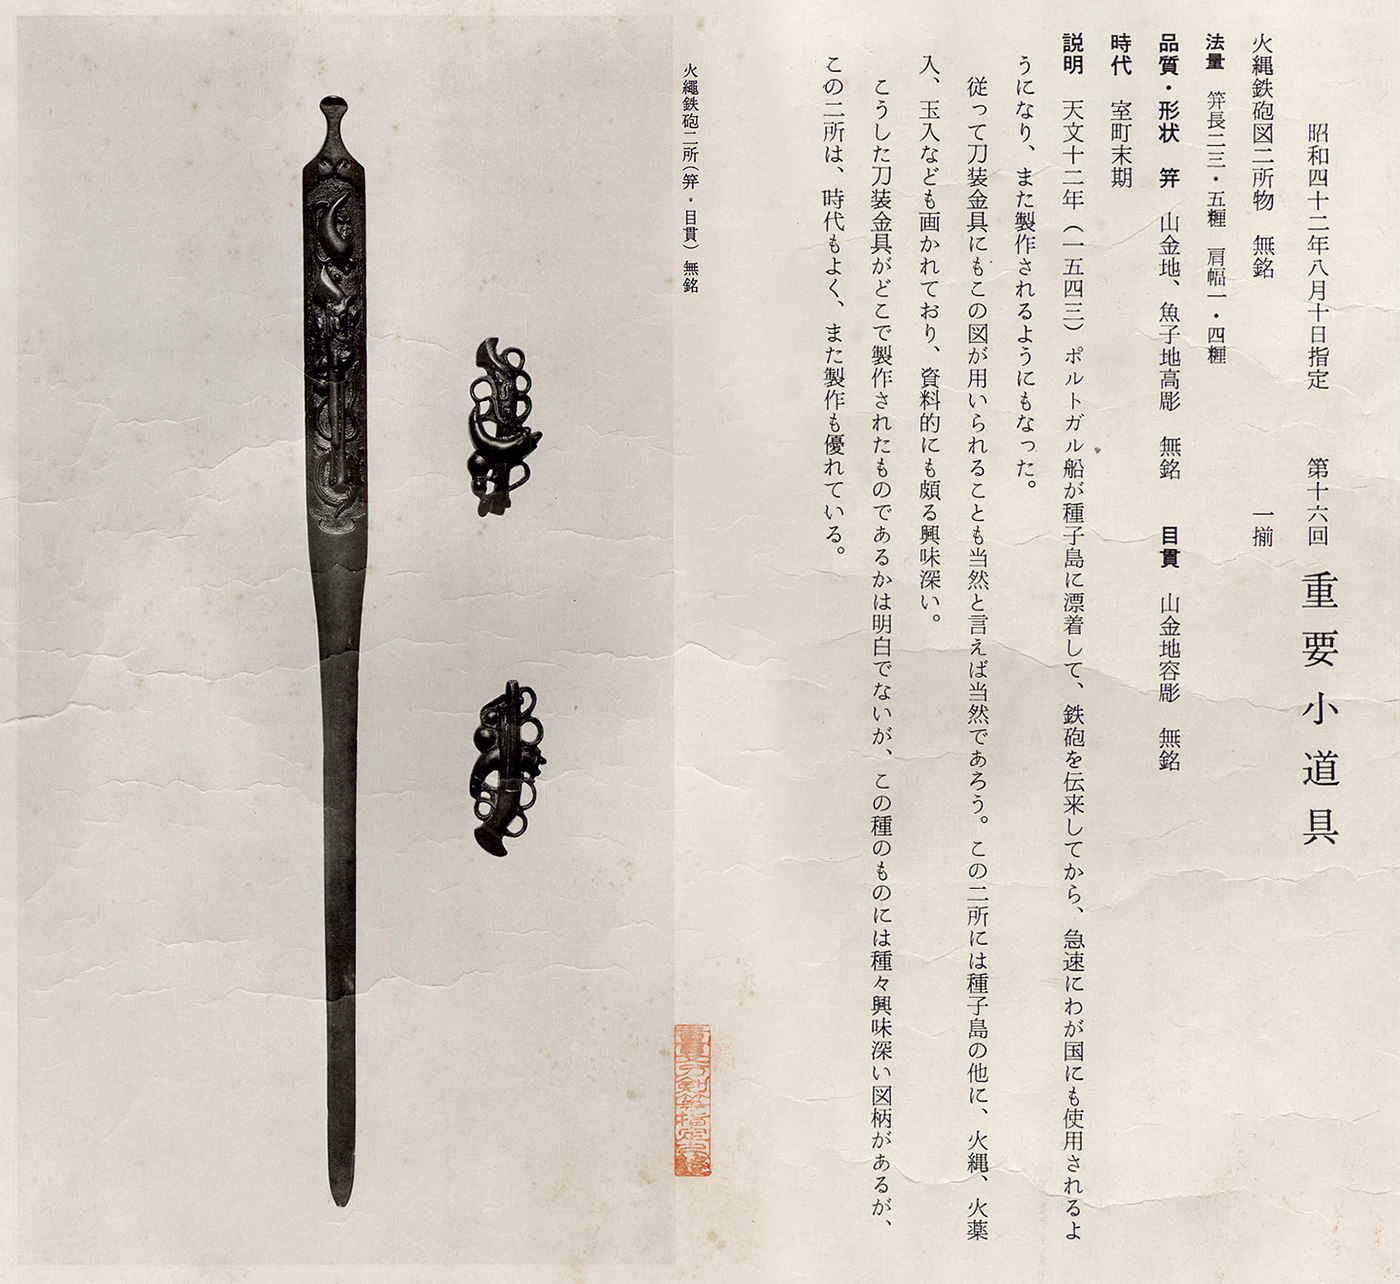 昭和四十二年八月十日指定　第十六回　重要小道具
火縄鉄砲図二所物　無銘　一揃
法量　笄長二三・五糎　肩幅一・四糎
品質・形状　笄　山金地、魚子地高彫　無銘　目貫　山金地容彫　無銘
時代　室町末期
説明　天文十二年（一五四三）ポルトガル船が種子島に漂着して、鉄砲を伝来してから、急速にわが国にも使用されるよ
うになり、また製作されるようにもなった。
従って刀装金具にもこの図が用いられることも当然と言えば当然であろう。この二所には種子島の他に、火縄、火薬
入、玉入なども画かれており、資料的にも頗る興味深い。
こうした刀装金具がどこで製作されたものであるかは明白でないが、この種のものには種々興味深い図柄があるが、
この二所は、時代もよく、また製作も優れている。
火繩鉄砲二所（笄・目貫）無銘